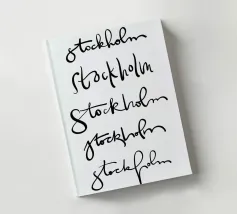 stockholm
stockholm
Stockholm
stockholm
stockholm